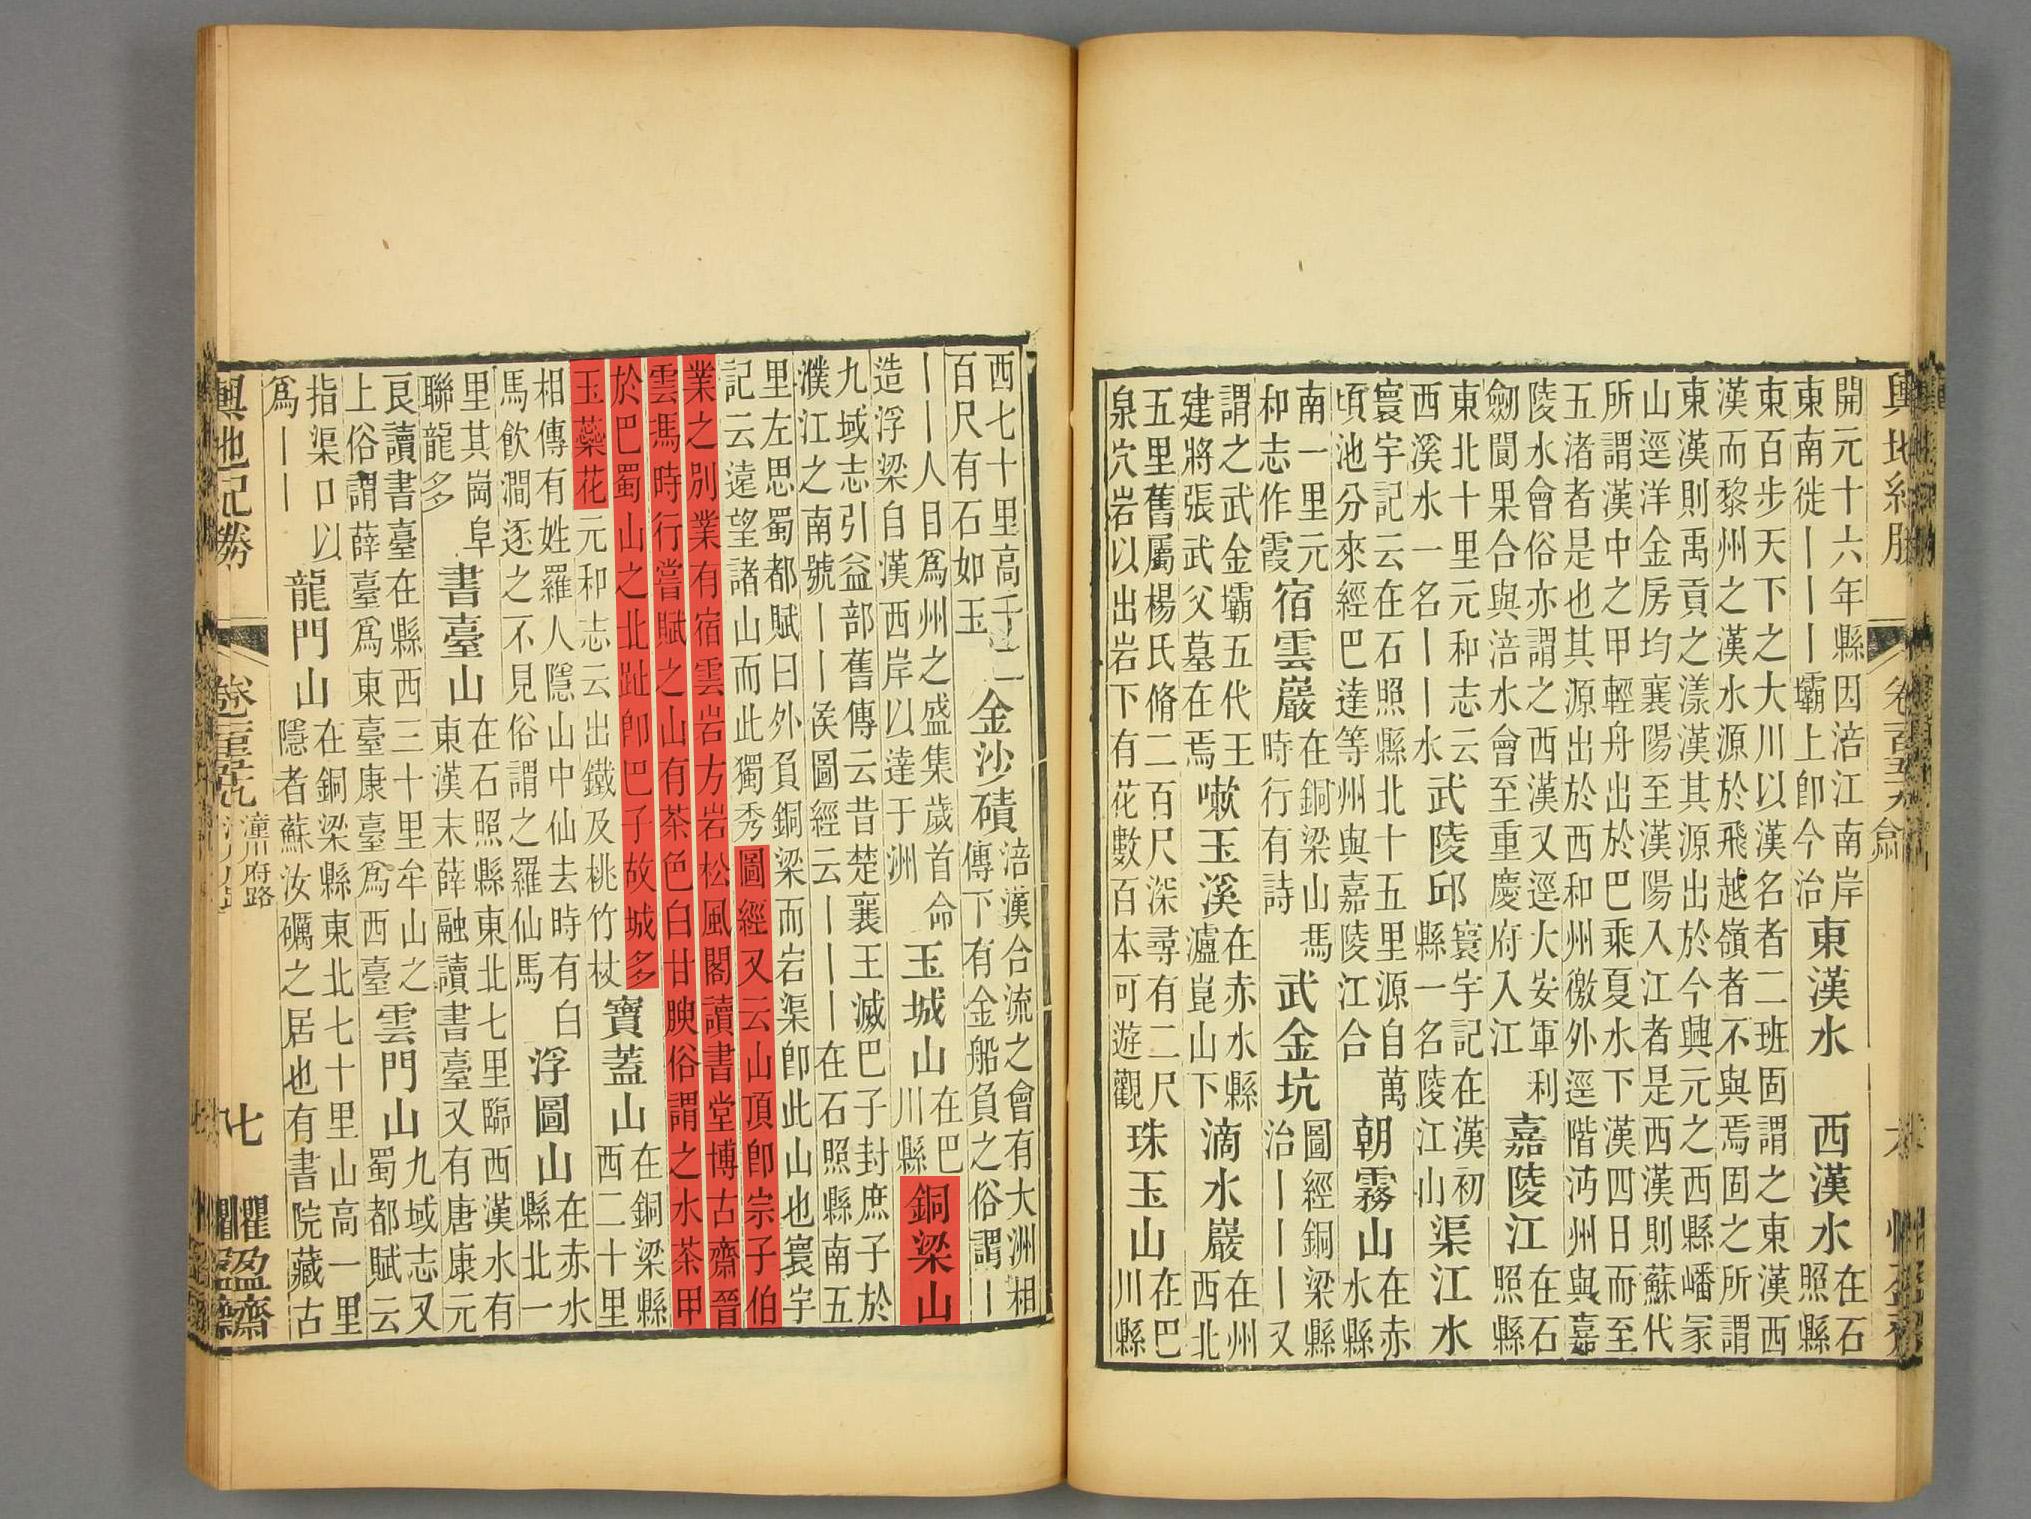 開元十六年縣因涪江南岸
東南徙丨丨丨壩上卽今治
東漢水
西漢水
在石
照縣
東百步天下之大川以漢名者二班固謂之東漢西
漢而黎州之漢水源於飛越嶺者不與焉固之所謂
東漢則禹貢之漾漢其源出於今興元之西縣嶓冢
山逕洋金房均襄陽至漢陽入江者是西漢則蘇代
所謂漢中之甲輕舟出於巴乘夏水下漢四日而至
五渚者是也其源出於西和州徼外逕階沔州與嘉
陵水會俗亦謂之西漢又逕大安軍利
劒閬果合與涪水會至重慶府入江
嘉陵江
在石
照縣
東北十里元和志云
西溪水一名丨丨水
武陵邱
寰宇記在漢初
縣一名陵江山
渠江水
寰宇記云在石照縣北十五里源自萬
頃池分來經巴達等州與嘉陵江合
朝霧山
在赤
水縣
南一里元
和志作霞
宿雲巖
在銅梁山馮
時行有詩
武金坑
圖經銅梁縣
治丨丨丨又
謂之武金壩五代王
建將張武父墓在焉
嗽玉溪
在赤水縣
瀘崑山下
滴水巖
在州
西北
五里舊屬楊氏脩二百尺深尋有二尺
泉穴岩以出岩下有花數百本可遊觀
珠玉山
在巴
川縣
西七十里高千
百尺有石如玉
金沙磧
涪漢合流之會有大洲相
傳下有金船負之俗謂丨
丨丨人日爲州之盛集歲首命
造浮梁自漢西岸以達于洲
玉城山
在巴
川縣
銅梁山
九域志引益部舊傳云昔楚襄王滅巴子封庶子於
濮江之南號丨丨矦圖經云丨丨在石照縣南五
里左思蜀都賦曰外負銅梁而宕渠卽此山也寰宇
記云遠望諸山而此獨秀圖經又云山頂卽宗子伯
業之別業有宿雲岩方岩松風閣讀書堂博古齋晉
雲馮時行嘗賦之山有茶色白甘腴俗謂之水茶甲
於巴蜀山之北趾卽巴子故城多
玉蘂花元和志云出鐵及桃竹杖
寶蓋山
在銅梁縣
西二十里
相傳有姓羅人隱山中仙去時有白
馬飲澗逐之不見俗謂之羅仙馬
浮圖山
在赤水
縣北一
里其崗阜
聯龍多
書臺山
在石照縣東北七里臨西漢水有
東漢末薛融讀書臺又有唐康元
艮讀書臺在縣西三十里牟山之
上俗謂薛臺爲東臺康臺爲西臺
雲門山
九域志又
蜀都賦云
指渠口以
爲丨丨
龍門山
在銅梁縣東北七十里山高一里
隱者蘇汝礪之居也有書院藏古
輿地記勝
潼川府路
七
懼盈齋